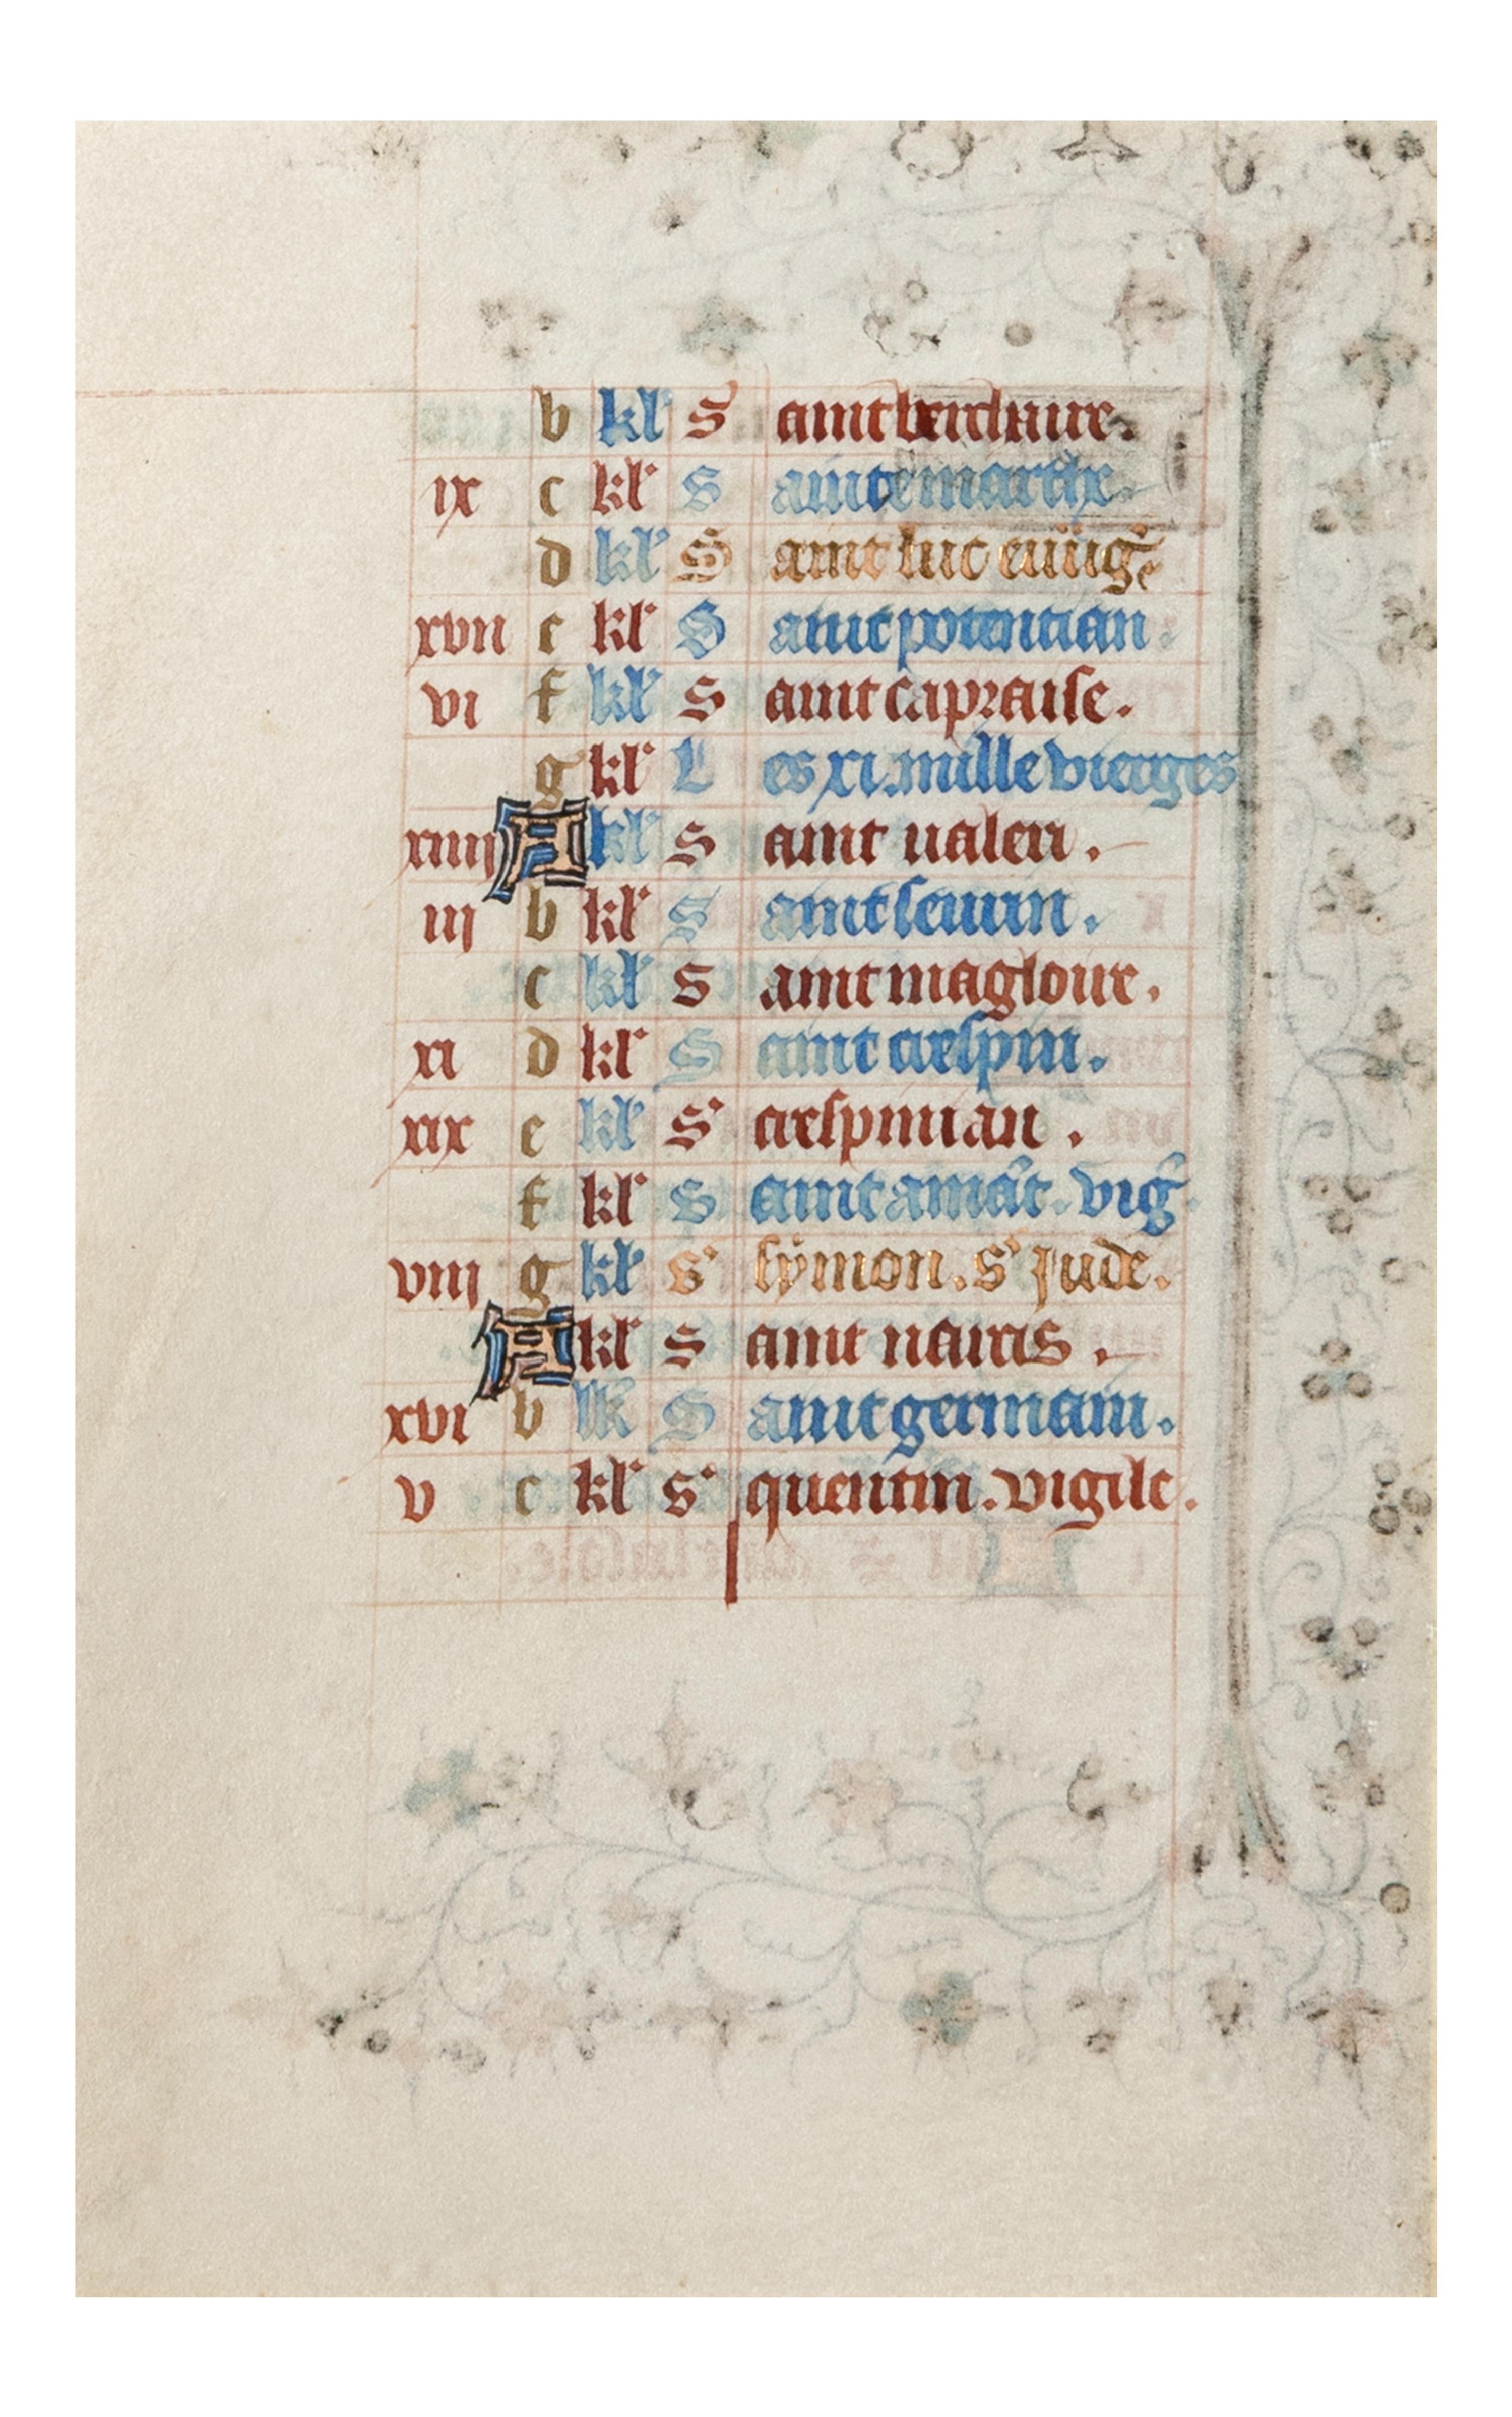 b kl' S aint
ix c kl' S ainte marthe.
d kl' S aint luc euüg.
xvii e kl' S aint potentian.
vi f kl' S aint capraise.
g kl' L es xi. mille vierges
xiiij A kl' S aint ualeri.
iij b kl' S aint seuerin.
c kl' S aint magloire.
xi d kl' S aint crespin.
xix e kl' S' crespinian.
f kl' S aint amãt. vig'
viij g kl' S' sÿmon. S' Jude.
A kl' S aint narcis.
xvi b kl' S aint germain.
v c kl' S' quentin. vigile.